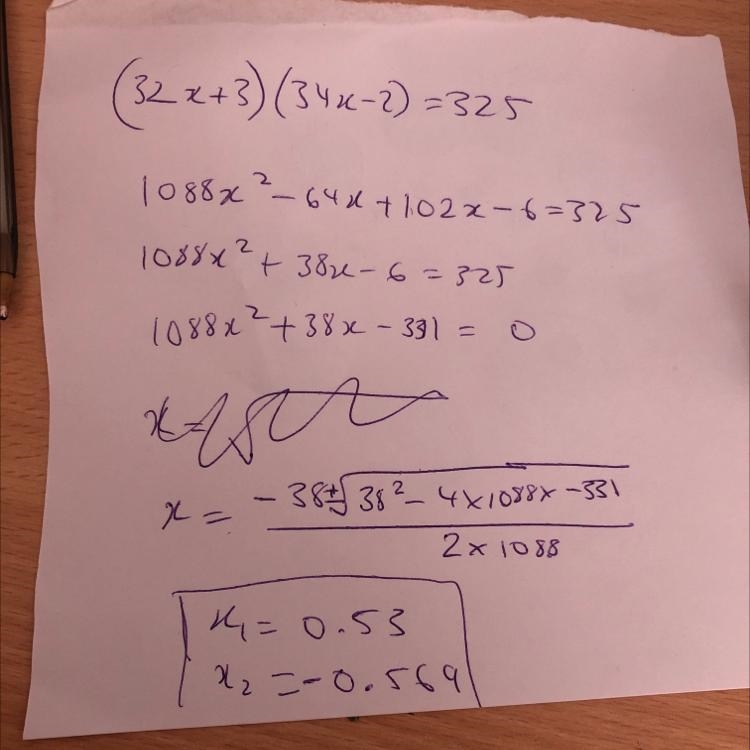 (32x+3)(34x-2)=325
1088x²-64x+102x-6=325
1088x²+38x-6=325
1088x²+38x-331=0
x=
x=(-38±√(38²-4×1088×-331))/(2×1088)
x₁=0.53
x₂=-0.569